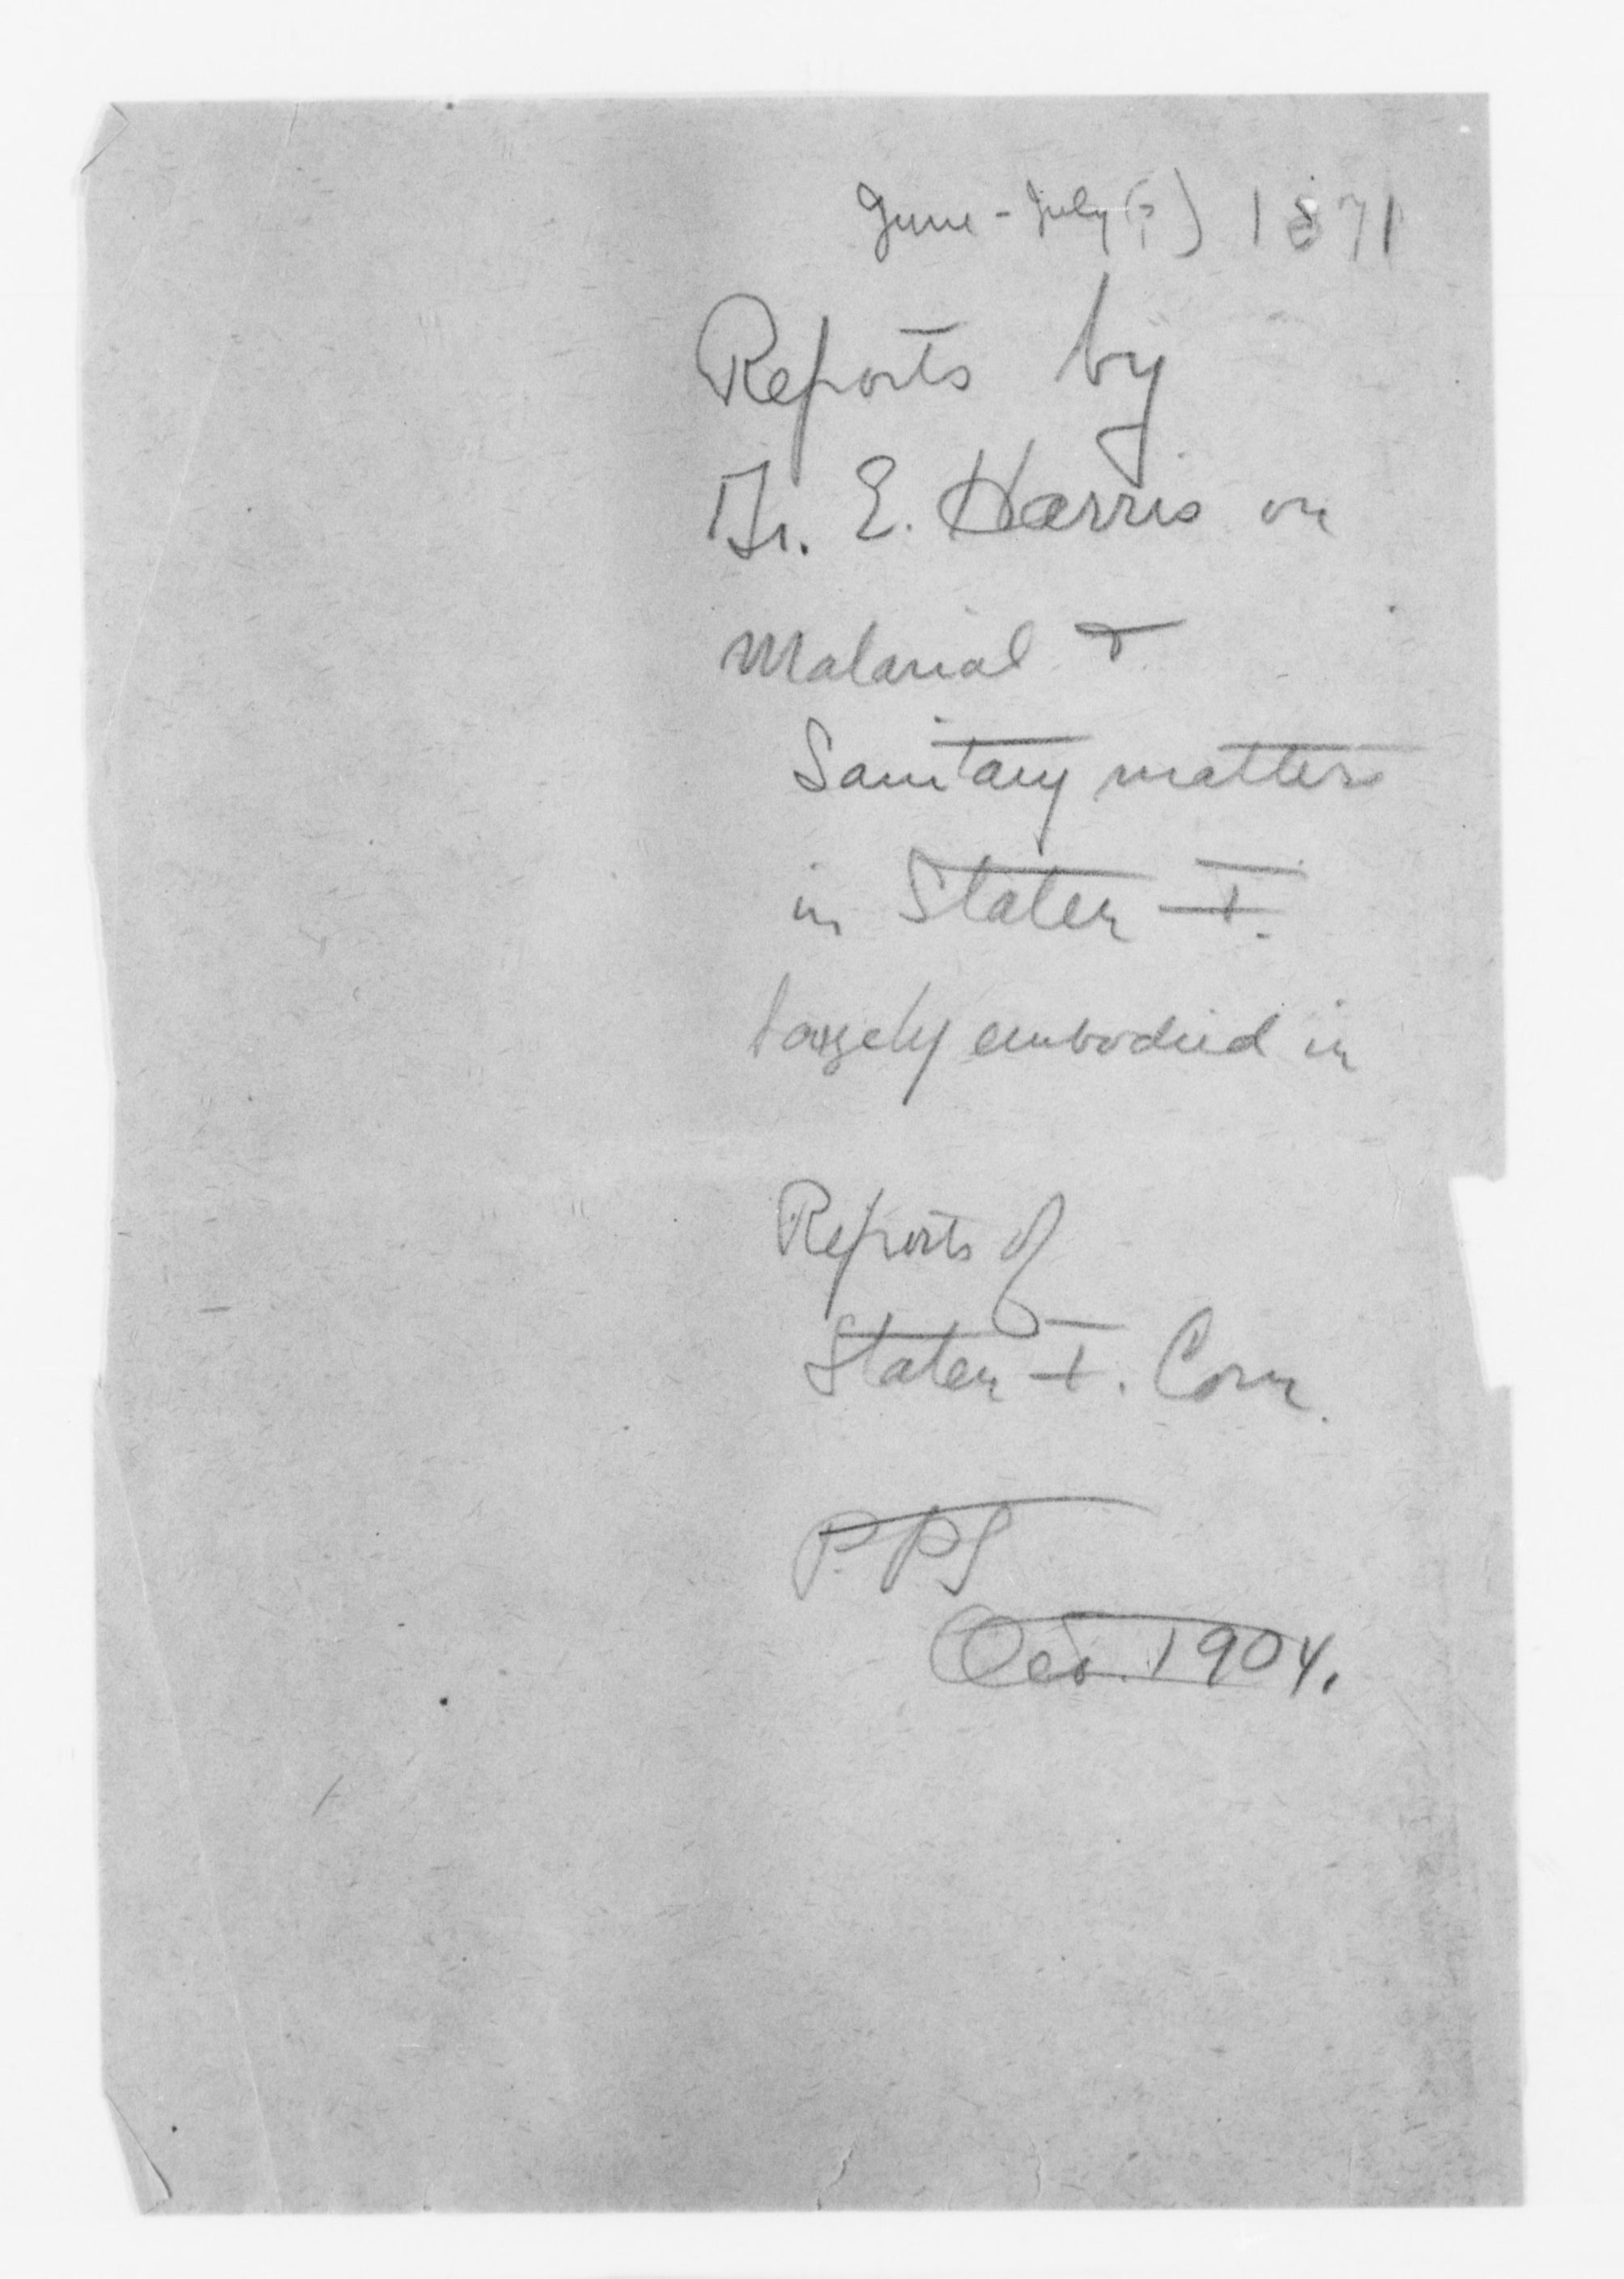 June - July (?) 1871
Reports by
Dr. E. Harris on
Malarial &
Sanitary matters
in Staten I.
largely embodied in
Reports of
Staten I. Com.
Oct. 1904.